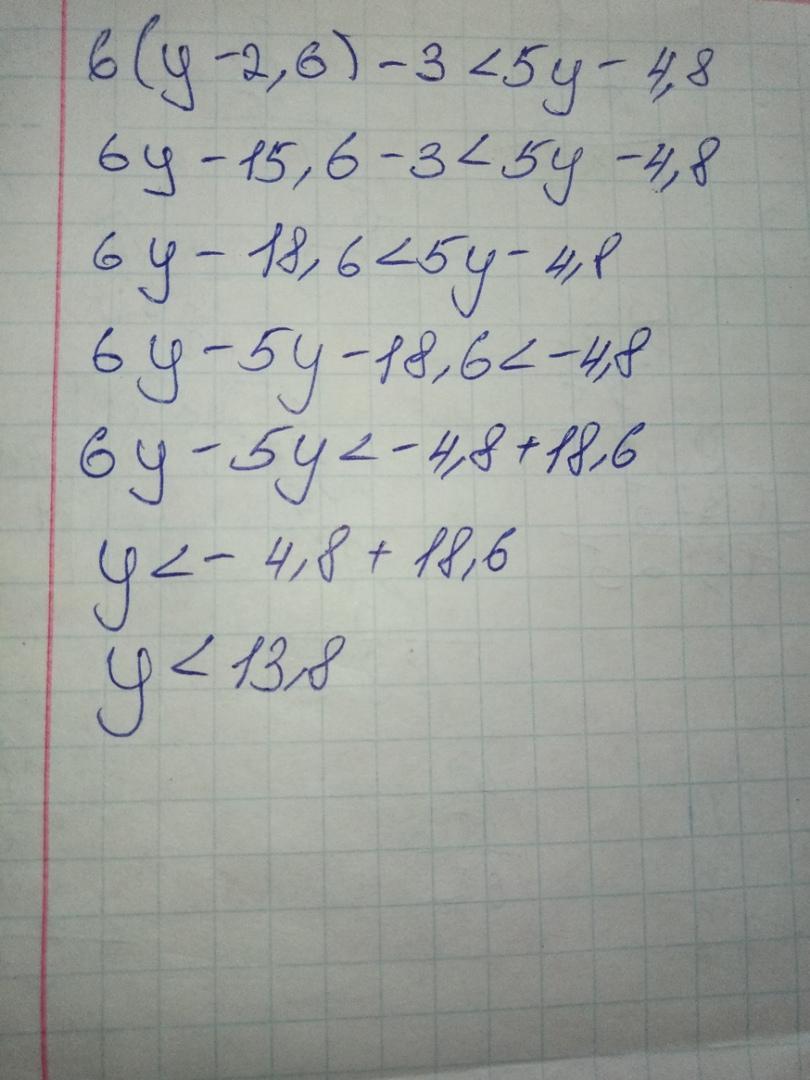 6(y-2,6)-3<5y-4,8
6y-15,6-3<5y-4,8
6y-18,6<5y-4,8
6y-5y-18,6<-4,8
6y-5y<-4,8+18,6
y<-4,8+18,6
y<13,8